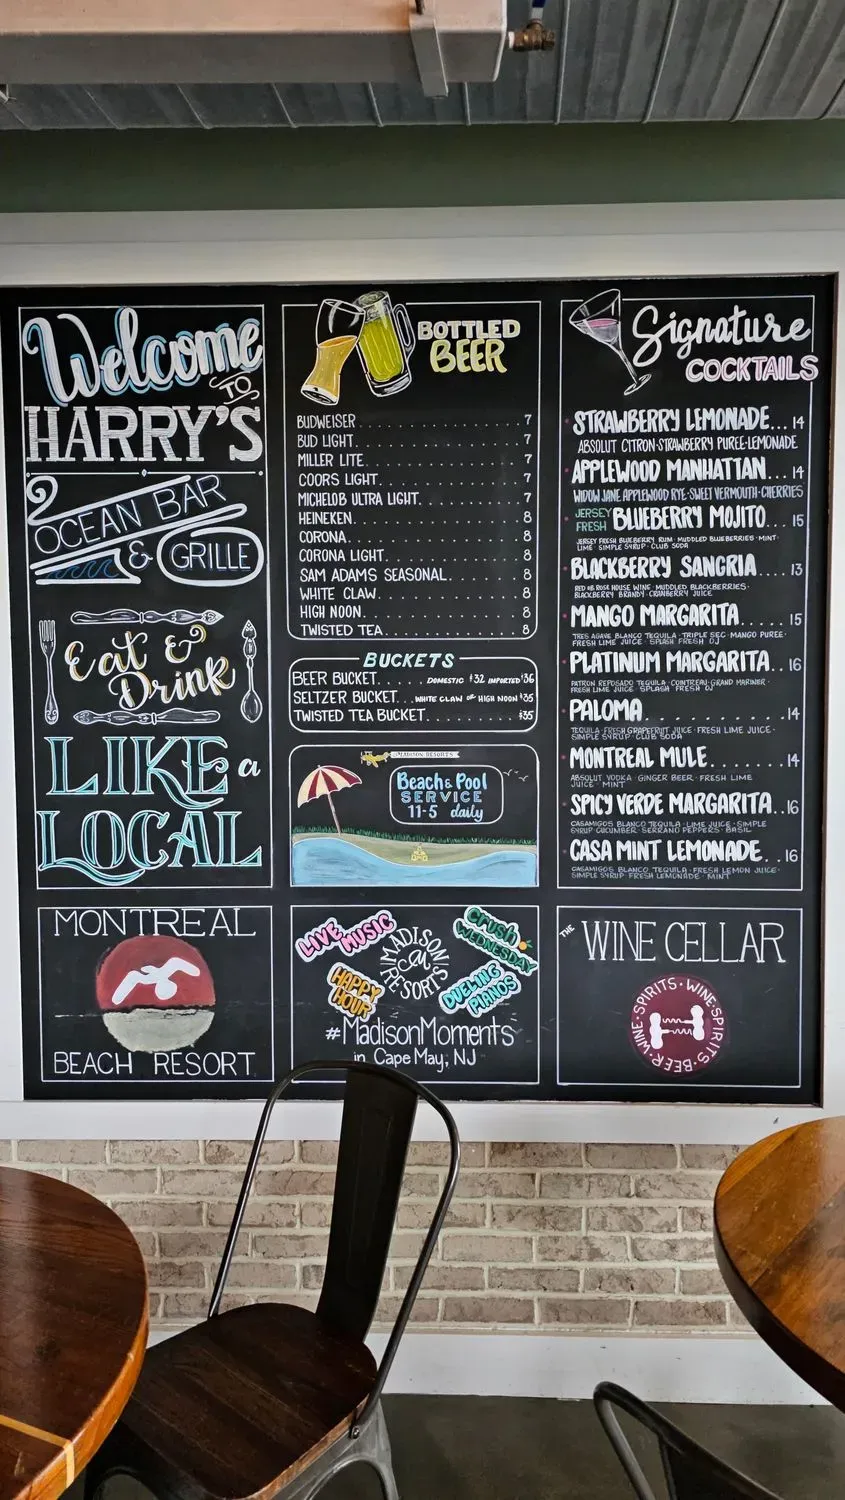 Welcome
TO
HARRY'S
OCEAN BAR
& GRILLE
Eat &
Drink
LIKE a
LOCAL
MONTREAL
BEACH RESORT
BOTTLED
BEER
BUDWEISER 7
BUD LIGHT 7
MILLER LITE 7
COORS LIGHT 7
MICHELOB ULTRA LIGHT 7
HEINEKEN 8
CORONA 8
CORONA LIGHT 8
SAM ADAMS SEASONAL 8
WHITE CLAW 8
HIGH NOON 8
TWISTED TEA 8
BUCKETS
BEER BUCKET DOMESTIC $32 IMPORTED $36
SELTZER BUCKET WHITE CLAW OR HIGH NOON $35
TWISTED TEA BUCKET $35
MADISON RESORTS
Beach & Pool
SERVICE
11-5 daily
LIVE MUSIC
HAPPY
HOUR
MADISON
CM
RESORTS
Crush
WEDNESDAY
DUELING
PIANOS
#MadisonMoments
in Cape May, NJ
Signature
COCKTAILS
STRAWBERRY LEMONADE... 14
ABSOLUT CITRON·STRAWBERRY PUREE·LEMONADE
APPLEWOOD MANHATTAN.... 14
WIDOW JANE APPLEWOOD RYE·SWEET VERMOUTH·CHERRIES
JERSEY
FRESH BLUEBERRY MOJITO.... 15
JERSEY FRESH BLUEBERRY RUM · MUDDLED BLUEBERRIES · MINT ·
LIME · SIMPLE SYRUP · CLUB SODA
BLACKBERRY SANGRIA.... 13
RED OR ROSE HOUSE WINE · MUDDLED BLACKBERRIES ·
BLACKBERRY BRANDY · CRANBERRY JUICE
MANGO MARGARITA..... 15
TRES AGAVE BLANCO TEQUILA · TRIPLE SEC · MANGO PUREE ·
FRESH LIME JUICE · SPLASH FRESH OJ
PLATINUM MARGARITA.. 16
PATRON REPOSADO TEQUILA · COINTREAU · GRAND MARINER ·
FRESH LIME JUICE · SPLASH FRESH OJ
PALOMA 14
TEQUILA · FRESH GRAPEFRUIT JUICE · FRESH LIME JUICE ·
SIMPLE SYRUP · CLUB SODA
MONTREAL MULE....... 14
ABSOLUT VODKA · GINGER BEER · FRESH LIME
JUICE · MINT
SPICY VERDE MARGARITA.. 16
CASAMIGOS BLANCO TEQUILA · LIME JUICE · SIMPLE
SYRUP · CUCUMBER · SERRANO PEPPERS · BASIL
CASA MINT LEMONADE... 16
CASAMIGOS BLANCO TEQUILA · FRESH LEMON JUICE ·
SIMPLE SYRUP · FRESH LEMONADE · MINT
THE WINE CELLAR
WINE·SPIRITS·BEER·WINE·SPIRITS·
H